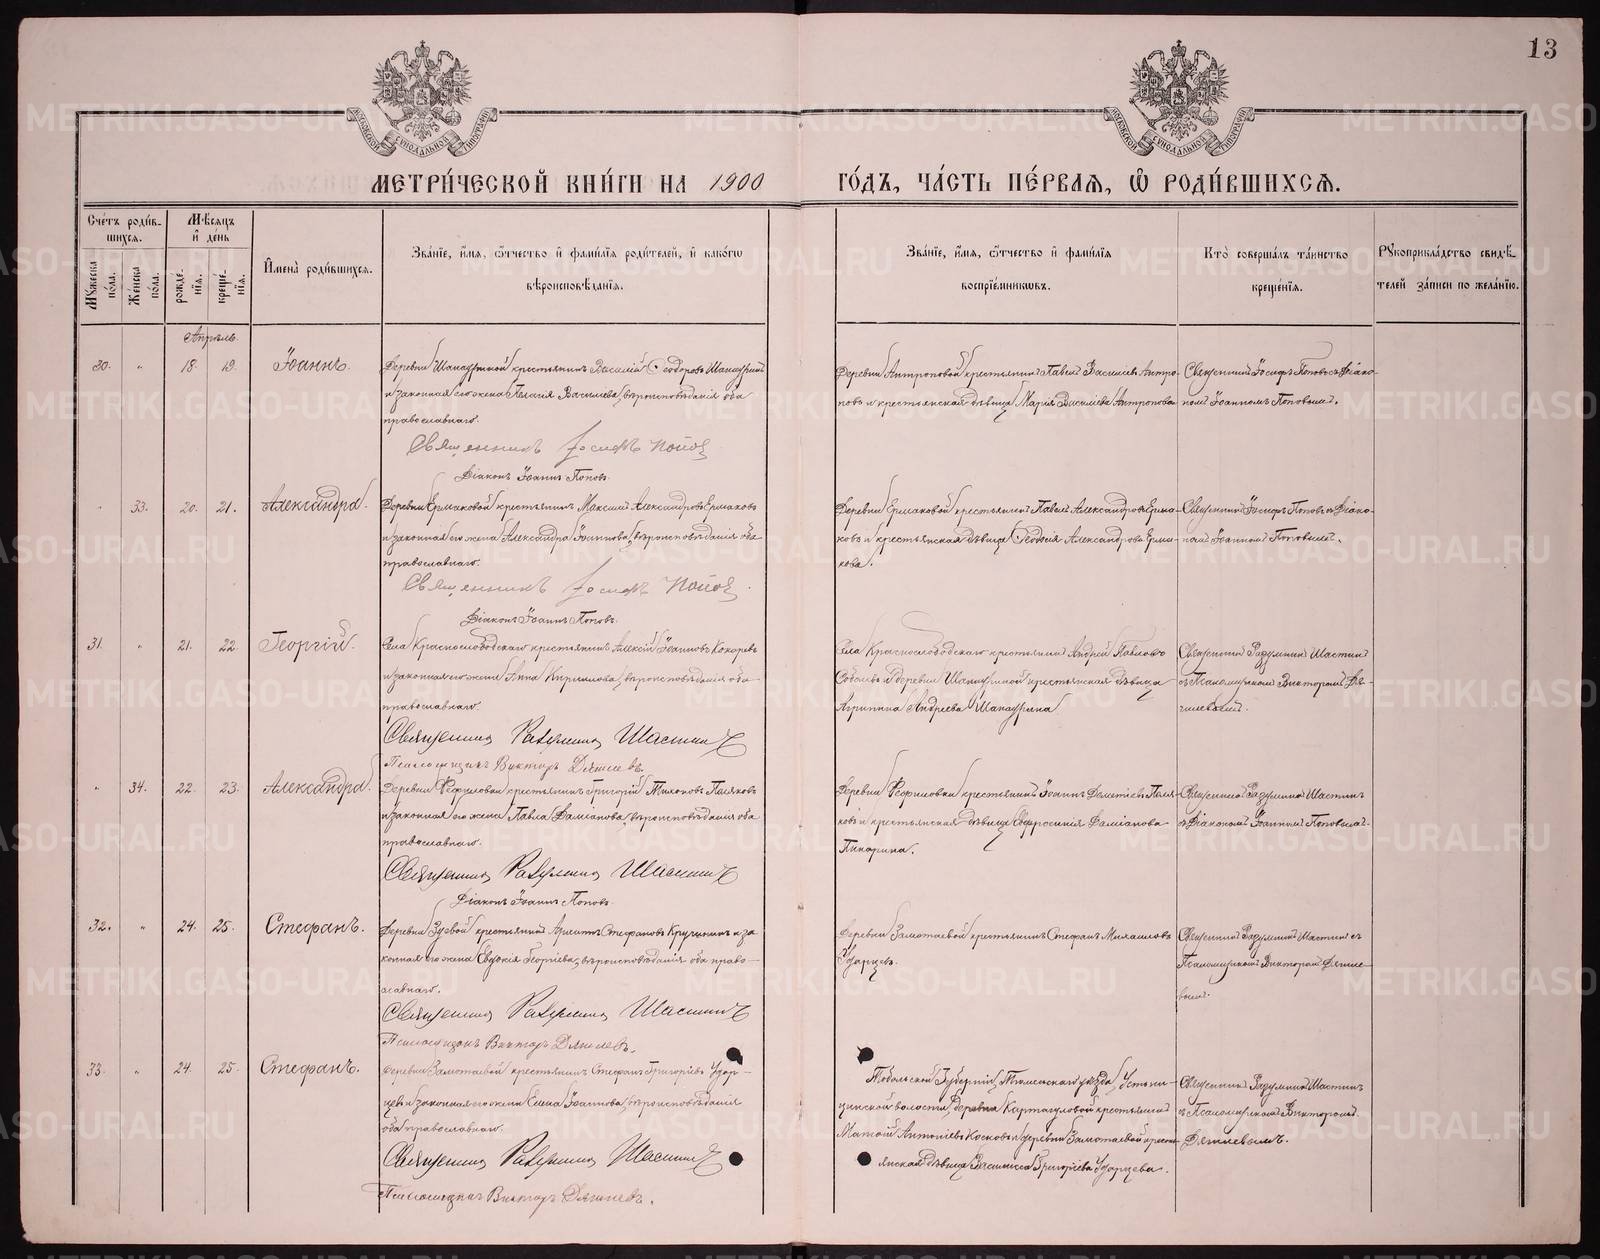 13
МОСКОВСКОЙ СѴНОДАЛЬНОЙ ТИПОГРАФІИ
МОСКОВСКОЙ СѴНОДАЛЬНОЙ ТИПОГРАФІИ
МЕТРИ́ЧЕСКОЙ КНИ́ГИ НА 1900 ГО́ДЪ, ЧА́СТЬ ПЕ́РВАЯ, Ѽ РОДИ́ВШИХСЯ.
Сче́тъ роди́в-
шихся.
Мѣ́сяцъ
и де́нь
Мꙋ́жеска
по́ла.
Же́нска
по́ла.
рожде́-
нїя.
креще́-
нїя.
И҆мена̀ роди́вшихся.
Зва́нїе, и҆́мя, ѻ҆́тчество и҆ фами́лїя роди́телей, и҆ како́гѡ
вѣроисповѣ́данїя.
Зва́нїе, и҆́мя, ѻ҆́тчество и҆ фами́лїя
воспрїе́мникѡвъ.
Кто̀ соверша́лъ та́инство
креще́нїя.
Рꙋкоприкла́дство свидѣ́-
телей за́писи по жела́нїю.
Апрѣль.
30. „ 18. 19. Іоаннъ.
Деревни Шанауриной крестьянинъ Василій Ѳеодоровъ Шанауринъ
и законная его жена Пелагія Васильева, вѣроисповѣданія оба
православнаго.
Священникъ Іосифъ Поповъ
Діаконъ Іоаннъ Поповъ.
Деревни Антроповой крестьянинъ Павелъ Васильевъ Антро-
повъ и крестьянская дѣвица Марія Васильева Антропова
Священникъ Іосифъ Поповъ съ діако-
номъ Іоанномъ Поповымъ.
„ 33. 20. 21. Александра.
Деревни Ермаковой крестьянинъ Максимъ Александровъ Ермаковъ
и законная его жена Александра Іоаннова, вѣроисповѣданія оба
православнаго.
Священникъ Іосифъ Поповъ.
Діаконъ Іоаннъ Поповъ.
Деревни Ермаковой крестьянинъ Павелъ Александровъ Ерма-
ковъ и крестьянская дѣвица Ѳеодосія Александрова Ерма-
кова.
Священникъ Іосифъ Поповъ съ діако-
номъ Іоанномъ Поповымъ.
31. „ 21. 22. Георгій.
Села Краснослободскаго крестьянинъ Алексій Іоанновъ Кокоревъ
и законная его жена Анна Кириллова, вѣроисповѣданія оба
православнаго.
Священникъ Разумникъ Шастинъ
Псаломщикъ Викторъ Дягилевъ.
Села Краснослободскаго крестьянинъ Андрей Павловъ
и деревни Шанауриной крестьянская дѣвица
Агриппина Андреева Шанаурина
Священникъ Разумникъ Шастинъ
съ псаломщикомъ Викторомъ Дя-
гилевымъ.
„ 34. 22. 23. Александра.
Деревни крестьянинъ Григорій Тихоновъ Поляковъ
и законная его жена Павла Даміанова, вѣроисповѣданія оба
православнаго.
Священникъ Разумникъ Шастинъ
Діаконъ Іоаннъ Поповъ.
Деревни крестьянинъ Іоаннъ Поля-
ковъ и крестьянская дѣвица Евфросинія Даміанова
Священникъ Разумникъ Шастинъ
съ діакономъ Іоанномъ Поповымъ.
32. „ 24. 25. Стефанъ.
Деревни Зуевой крестьянинъ Стефановъ и за-
конная его жена Евдокія Георгіева, вѣроисповѣданія оба право-
славнаго.
Священникъ Разумникъ Шастинъ
Псаломщикъ Викторъ Дягилевъ.
Деревни Замотаевой крестьянинъ Стефанъ
Ударцевъ.
Священникъ Разумникъ Шастинъ съ
псаломщикомъ Викторомъ Дягиле-
вымъ.
33. „ 24. 25. Стефанъ.
Деревни Замотаевой крестьянинъ Стефанъ Григорьевъ Удар-
цевъ и законная его жена Елена Іоаннова, вѣроисповѣданія
оба православнаго.
Священникъ Разумникъ Шастинъ
Псаломщикъ Викторъ Дягилевъ.
Тобольской Губерніи, Тюменскаго уѣзда,
волости, деревни крестьянинъ
и деревни Замотаевой кресть-
янская дѣвица Василисса Григорьева Ударцева.
Священникъ Разумникъ Шастинъ
съ псаломщикомъ Викторомъ
Дягилевымъ.
METRIKI.GASO-URAL.RU